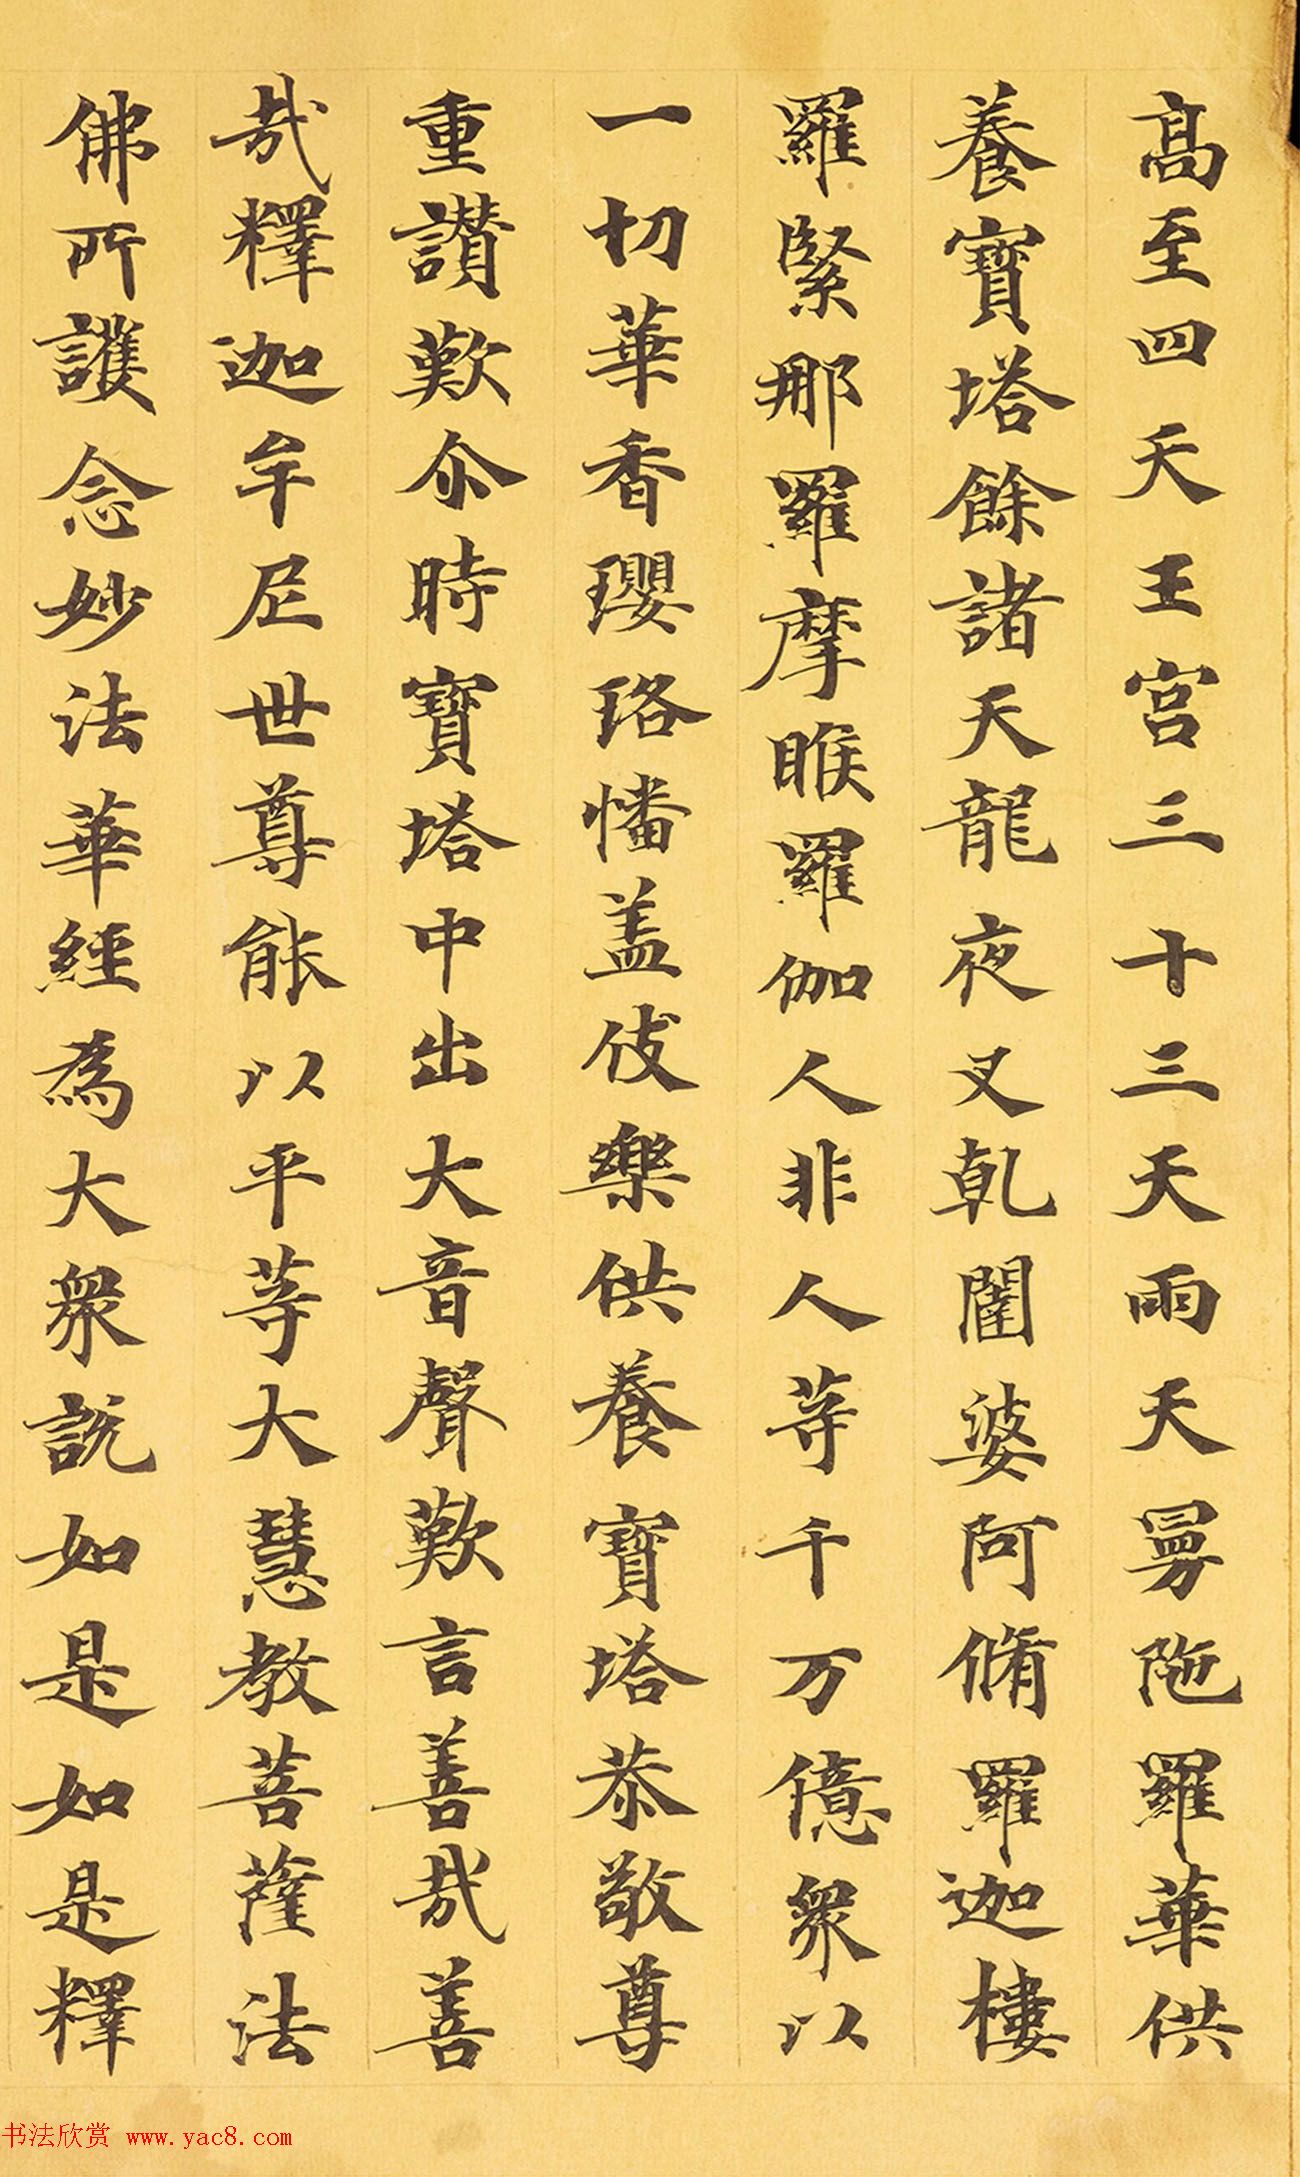 高至四天王宫三十三天雨天曼陁羅華供
養寶塔餘諸天龍夜叉乹闥婆阿脩羅迦樓
羅緊那羅摩睺羅伽人非人等千万億衆以
一切華香瓔珞幡盖伎樂供養寶塔恭敬尊
重讃歎尒時寶塔中出大音聲歎言善㢤善
㢤釋迦牟尼世尊能以平等大慧教菩薩法
佛所護念妙法華經為大衆說如是如是釋
书法欣赏 www.yac8.com